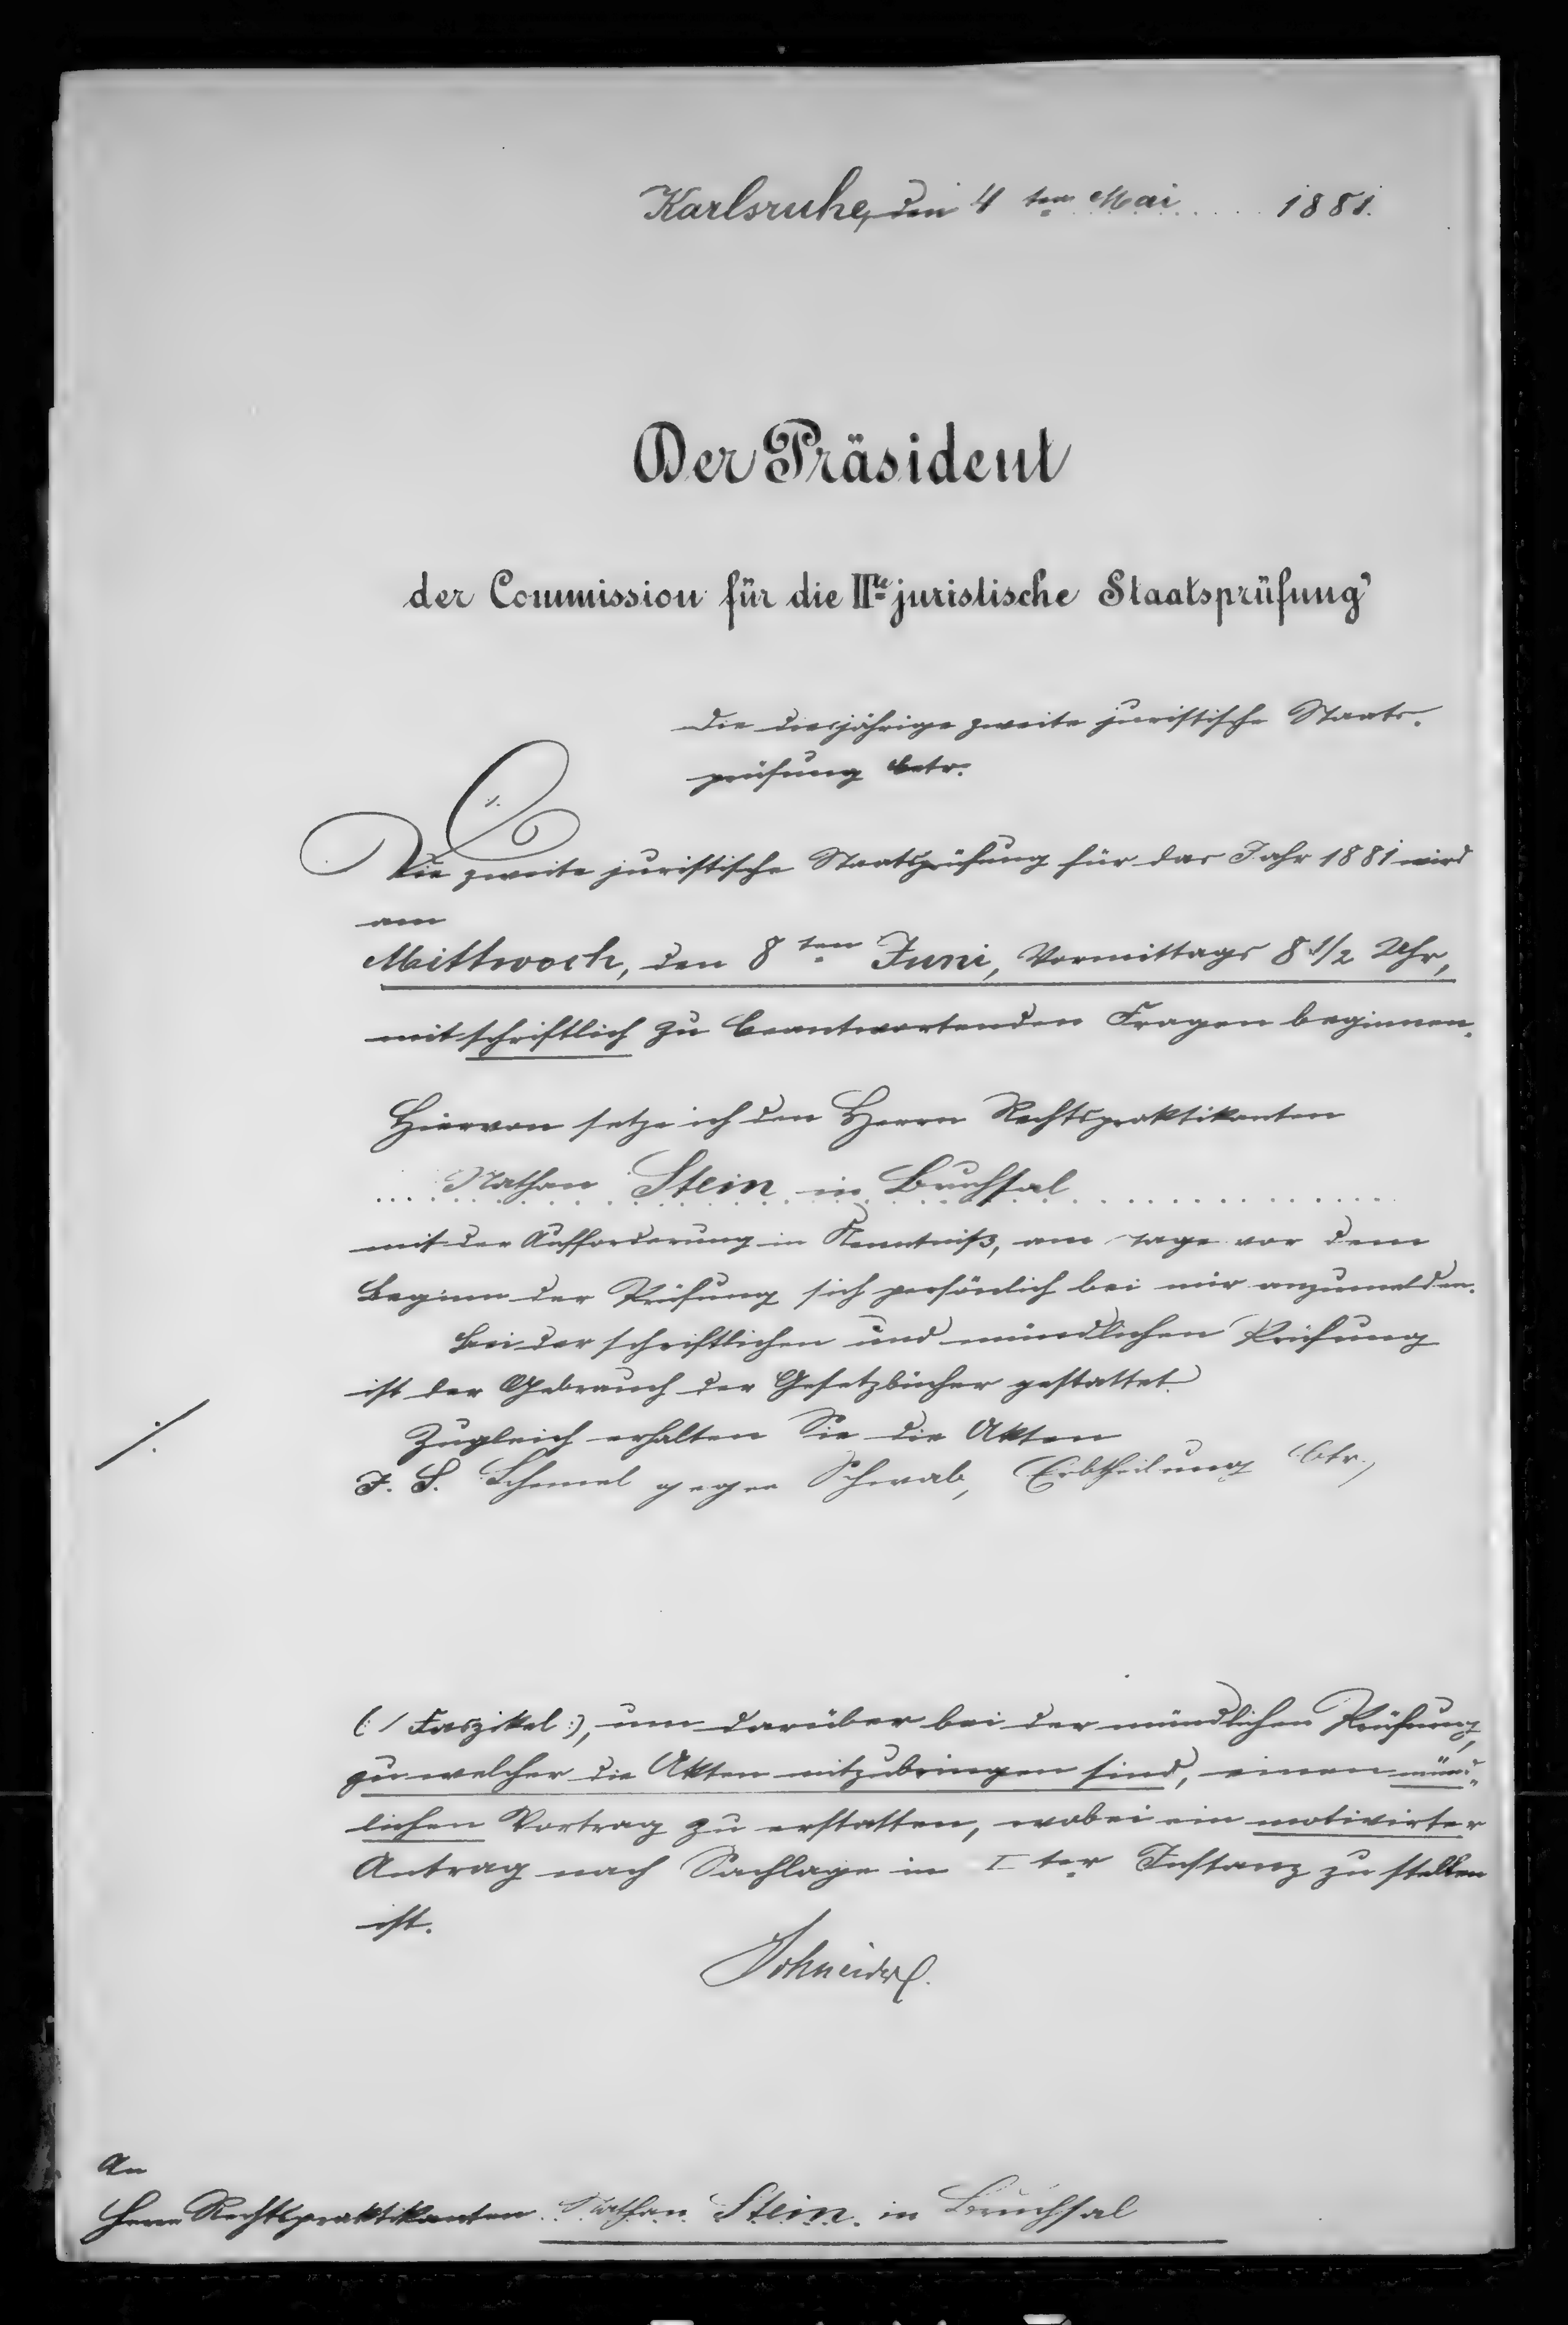 Karlsruhe, den 4 ten Mai 1881.
Der Präsident
der Commission für die IIte juristische Staatsprüfung
Die diesjährige zweite juristische Staats-
prüfung betr.
Die zweite juristische Staatsprüfung für das Jahr 1881 wird
am
Mittwoch, den 8 ten Juni, Vormittags 8 1/2 Uhr,
mit schriftlich zu beantwortenden Fragen beginnen.
Hiervon setze ich den Herrn Rechtspraktikanten
Nathan Stein in Bruchsal
mit der Aufforderung in Kenntniß, am Tage vor dem
Beginn der Prüfung sich persönlich bei mir anzumelden.
Bei der schriftlichen und mündlichen Prüfung
ist der Gebrauch der Gesetzbücher gestattet.
Zugleich erhalten Sie die Akten
J. S. Schemel gegen Schwab, Erbtheilung btr.,
(: 1 Faszikel :), um darüber bei der mündlichen Prüfung,
zu welcher die Akten mitzubringen sind, einen münd-
lichen Vortrag zu erstatten, wobei ein motivirter
Antrag nach Sachlage in I ter Instanz zu stellen
ist.
Schneider
An
Herrn Rechtspraktikanten Nathan Stein in Bruchsal